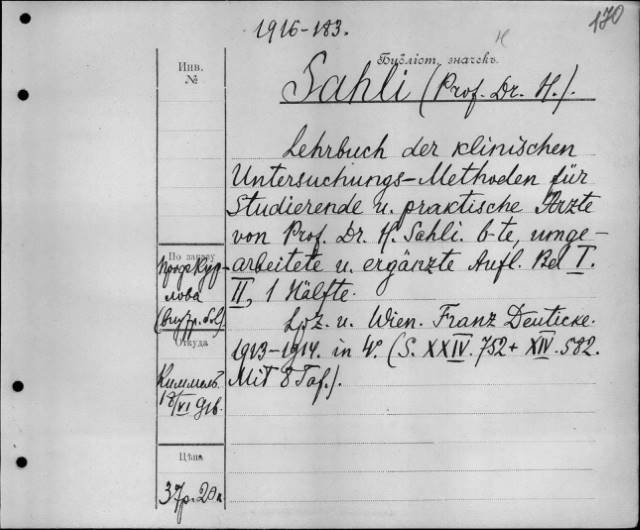 1916-183.
170
Инв.
№
Библіот. значекъ.
Sahli (Prof. Dr. H.).
Lehrbuch der klinischen
Untersuchungs-Methoden für
Studierende u. praktische Ärzte
von Prof. Dr. H. Sahli. 6-te, umge-
arbeitete u. ergänzte Aufl. Bd I.
II, 1 Hälfte.
Lpz. u. Wien. Franz Deuticke.
1913-1914. in 4°. (S. XXIV. 752 + XIV. 582.
Mit 8 Taf.).
По заказу
проф Кур-
лова
Откуда
Киммель
18/VI 916.
Цѣна
37р. 20к